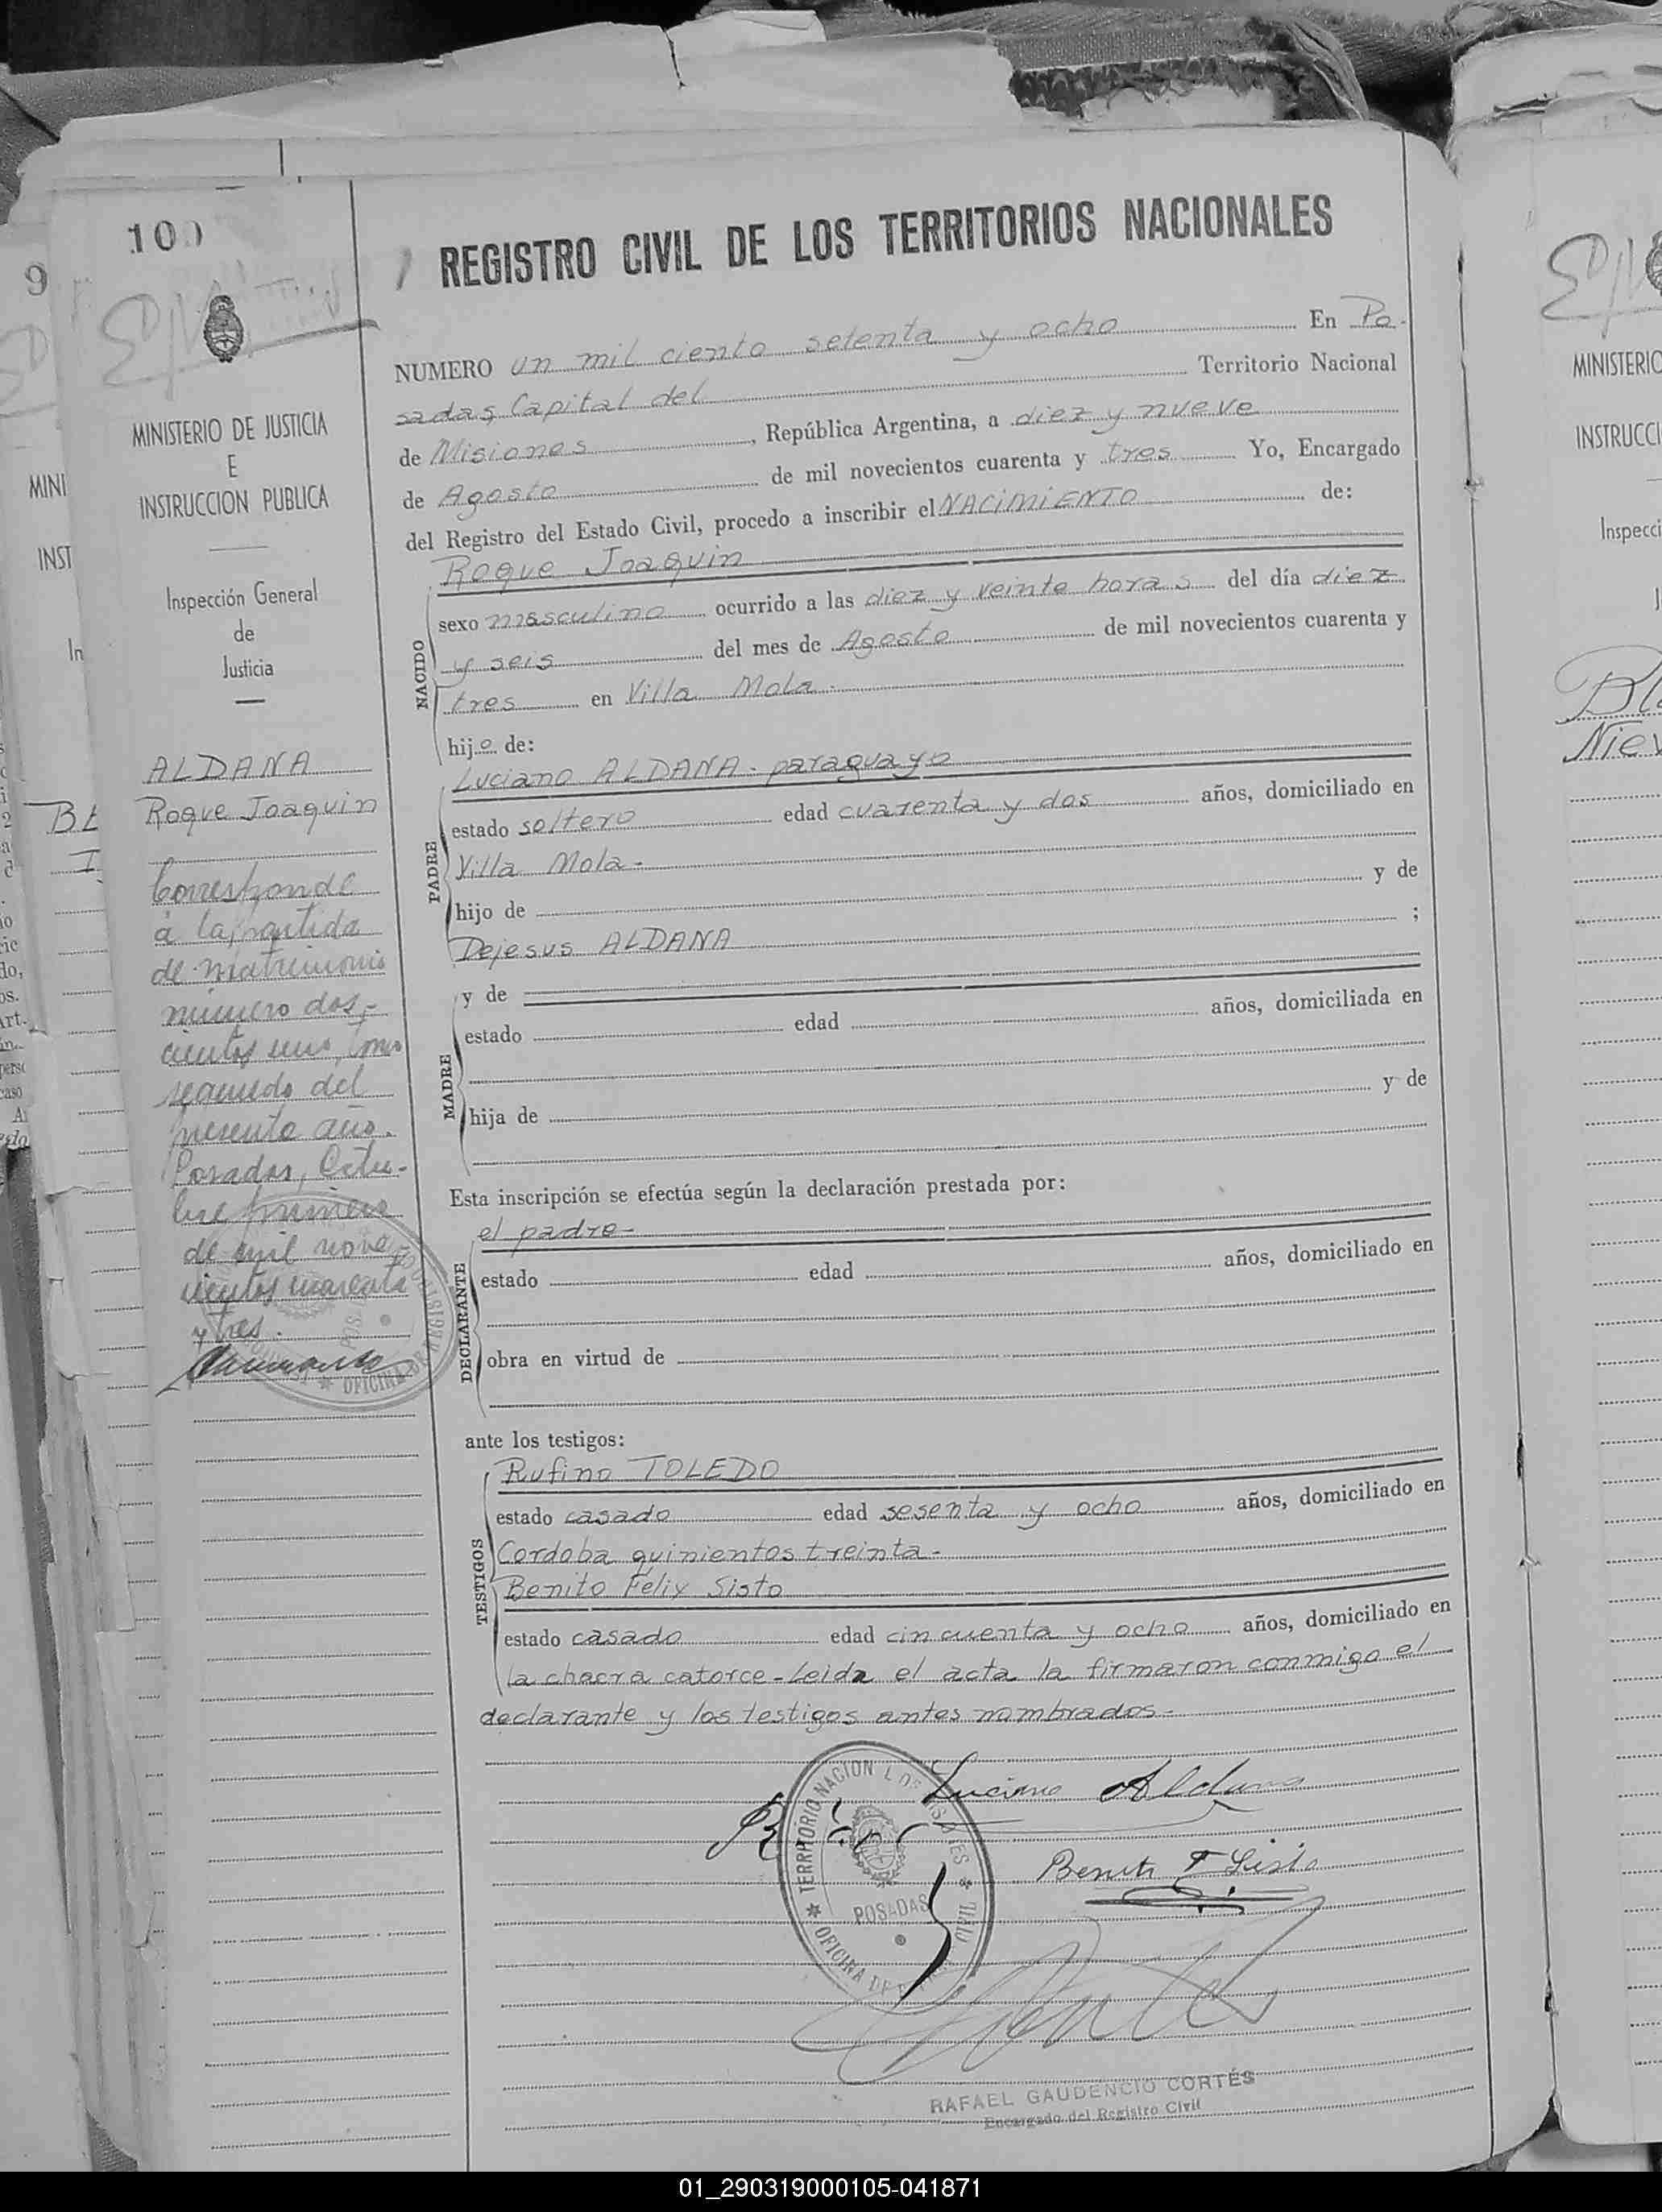 100
REGISTRO CIVIL DE LOS TERRITORIOS NACIONALES
MINISTERIO DE JUSTICIA
E
INSTRUCCION PUBLICA
Inspección General
de
Justicia
ALDANA
Roque Joaquin
Corresponde
a la partida
de matrimonio
número dos-
cientos uno, tomo
segundo del
presente año.
Posadas, Octu-
bre primero
de mil nove-
cientos cuarenta
y tres.
NUMERO un mil ciento setenta y ocho En Po-
sadas, Capital del Territorio Nacional
de Misiones, República Argentina, a diez y nueve
de Agosto de mil novecientos cuarenta y tres Yo, Encargado
del Registro del Estado Civil, procedo a inscribir el NACIMIENTO de:
Roque Joaquin
NACIDO
sexo masculino ocurrido a las diez y veinte horas del día diez
y seis del mes de Agosto de mil novecientos cuarenta y
tres en Villa Mola.
hijo de:
Luciano ALDANA - paraguayo
PADRE
estado soltero edad cuarenta y dos años, domiciliado en
Villa Mola-
hijo de y de
Dejesus ALDANA ;
y de
MADRE
estado edad años, domiciliada en
hija de y de
Esta inscripción se efectúa según la declaración prestada por:
el padre-
DECLARANTE
estado edad años, domiciliado en
obra en virtud de
ante los testigos:
Rufino TOLEDO
TESTIGOS
estado casado edad sesenta y ocho años, domiciliado en
Cordoba quinientos treinta-
Benito Felix Sisto
estado casado edad cincuenta y ocho años, domiciliado en
la chacra catorce-Leida el acta la firmaron conmigo el
declarante y los testigos antes nombrados-
Luciano Aldana
Benito F Sisto
TERRITORIO NACION
POSADAS
OFICINA DE
RAFAEL GAUDENCIO CORTÉS
Encargado del Registro Civil
9
MINI
INST
In
MINISTERIO
INSTRUCCI
Inspecci
Niev
01_290319000105-041871